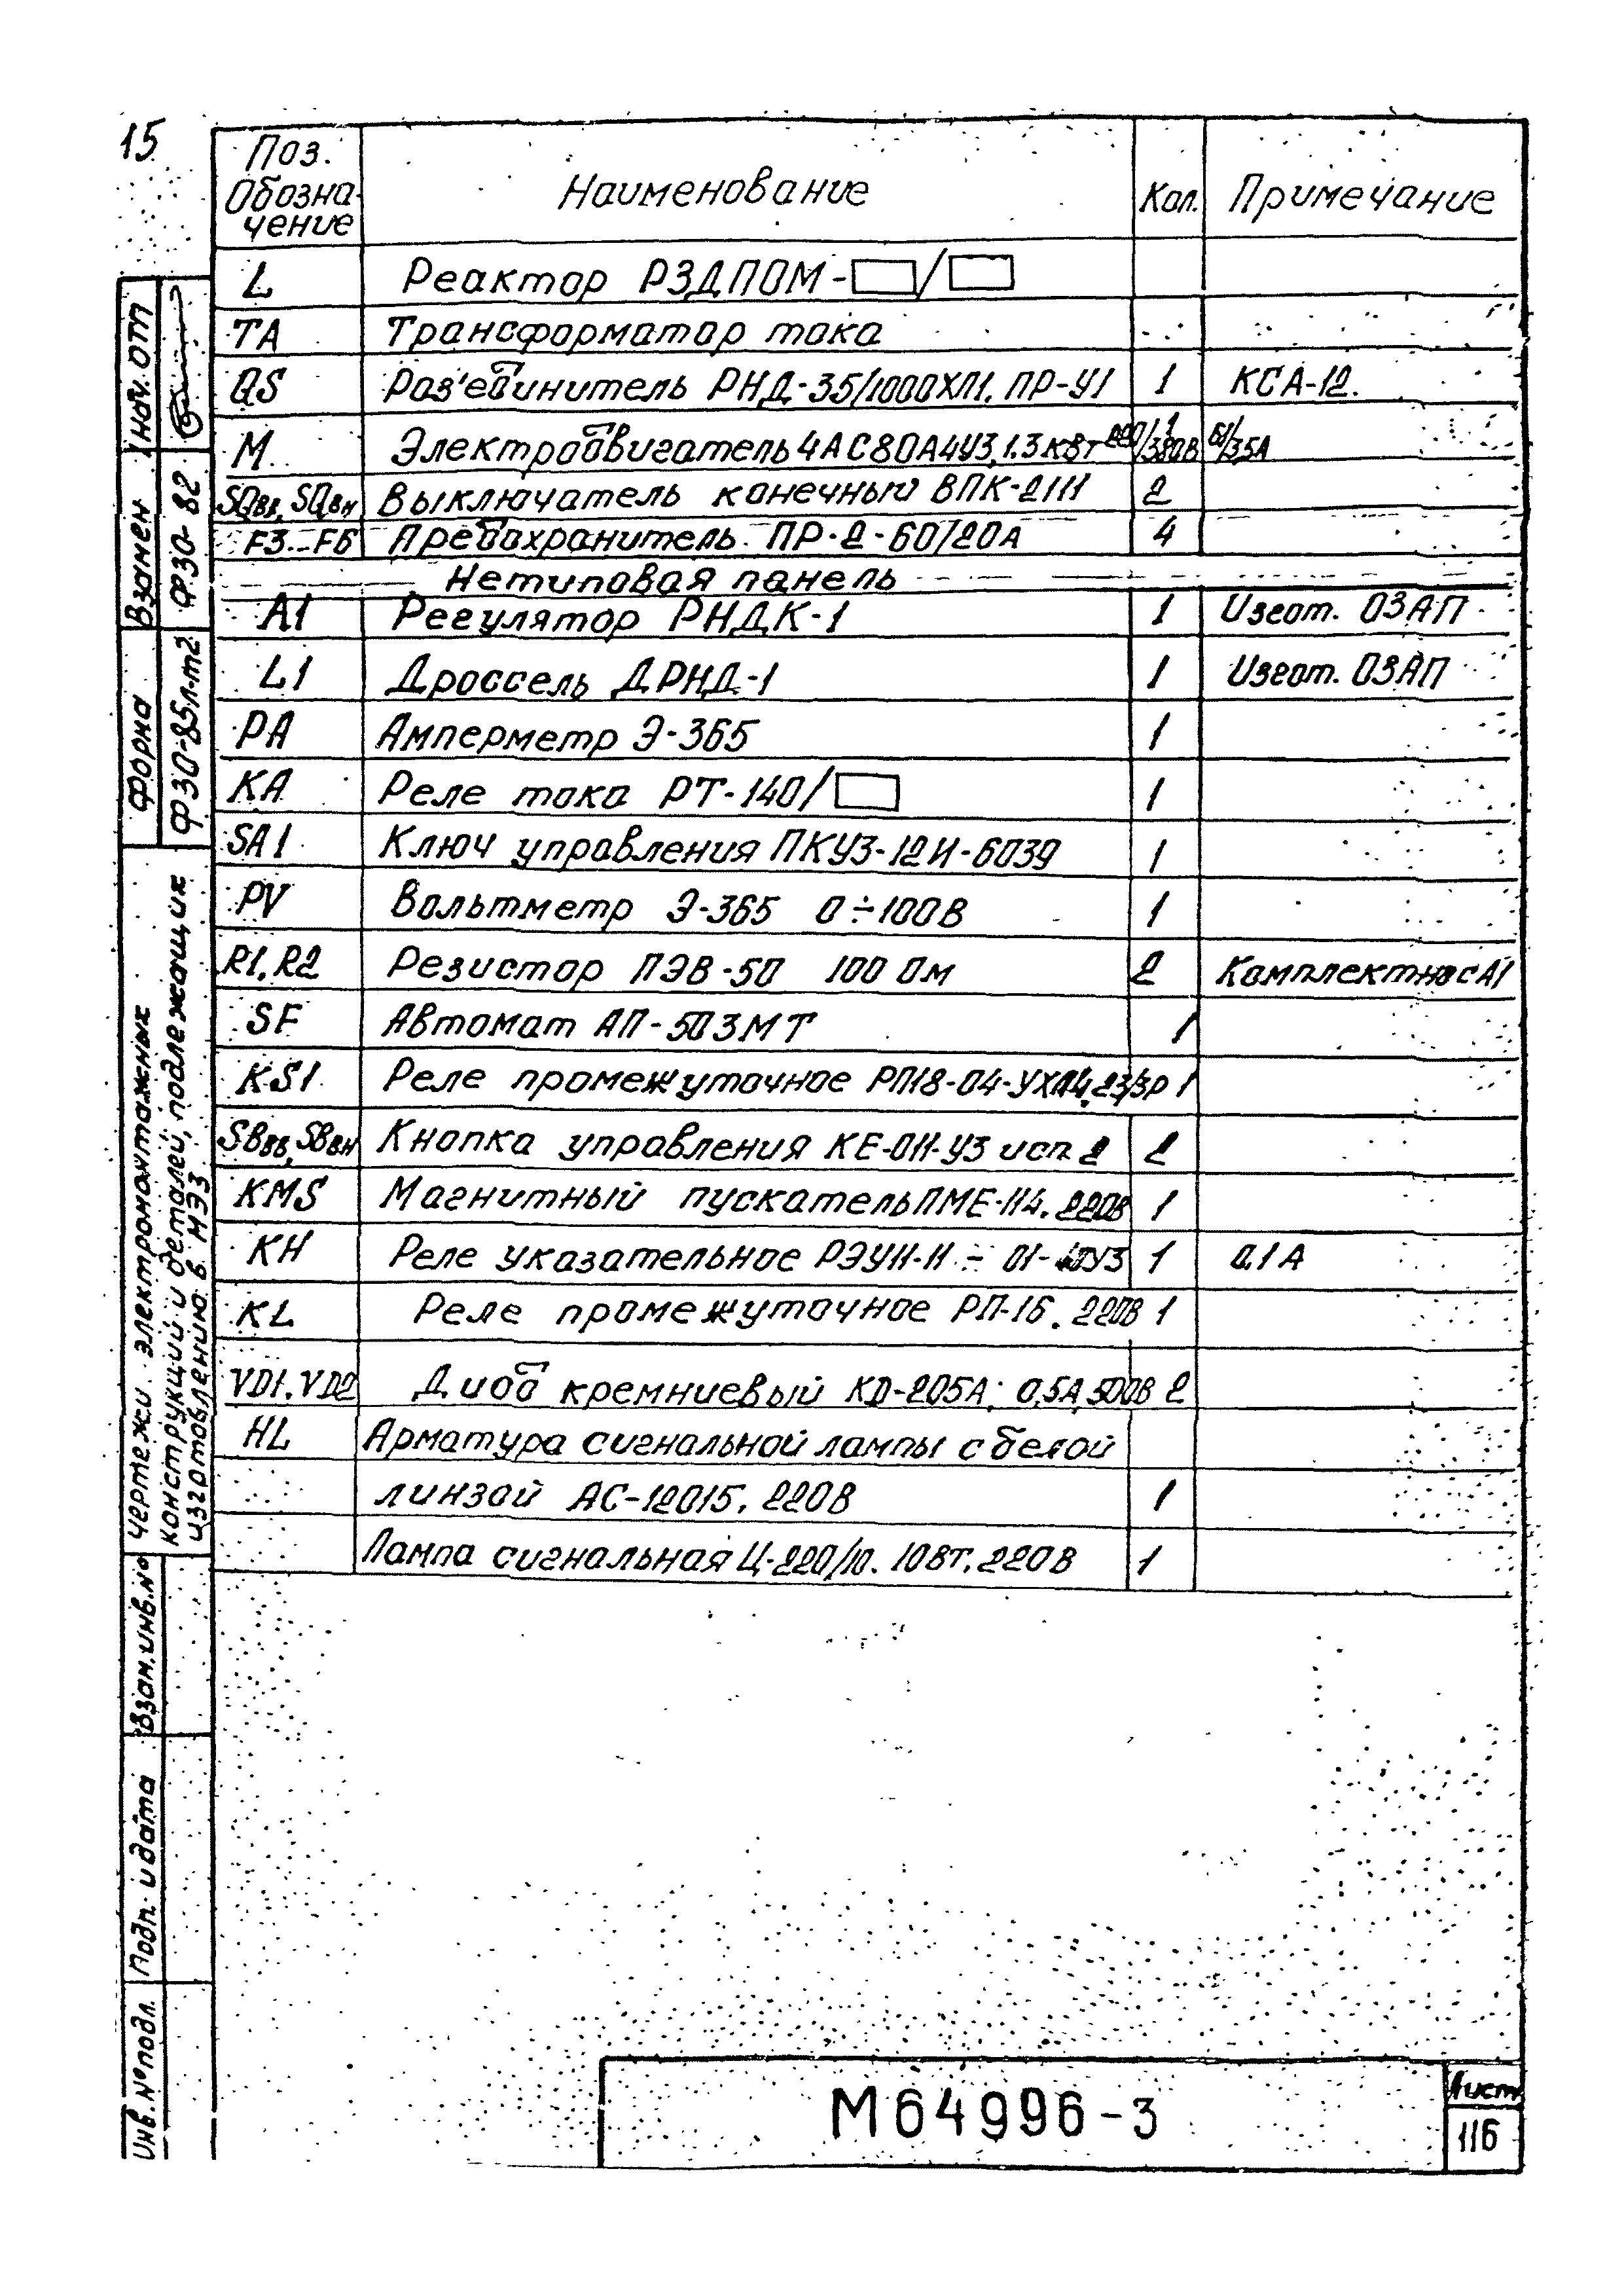 15
Поз. Обозна-чение Наименование Кол. Примечание
L Реактор РЗДПОМ-□/□
TA Трансформатор тока
QS Раз'единитель РНД-35/1000ХЛ1. ПР-У1 1 КСА-12.
M Электродвигатель 4АС80А4У3, 1.3 кВт 220/380В 1 61/3,5А
SQвв, SQвн Выключатель конечный ВПК-2111 2
F3...F6 Предохранитель ПР-2-60/20А 4
Нетиповая панель
A1 Регулятор РНДК-1 1 Изгот. ОЗАП
L1 Дроссель ДРНД-1 1 Изгот. ОЗАП
PA Амперметр Э-365 1
KA Реле тока РТ-140/□ 1
SA1 Ключ управления ПКУ3-12И-6039 1
PV Вольтметр Э-365 0÷100В 1
R1, R2 Резистор ПЭВ-50 100 Ом 2 Комплектно с А1
SF Автомат АП-50 3МТ 1
KS1 Реле промежуточное РП18-04-УХЛ4, 1
SBвв, SBвн Кнопка управления КЕ-011-У3 исп. 2 2
KMS Магнитный пускатель ПМЕ-114. 220В 1
KH Реле указательное РЭУ11-11 - 01- У3 1 0,1 А
KL Реле промежуточное РП-16. 220В 1
VD1, VD2 Диод кремниевый КД-205А; 0,5А, 500В 2
HL Арматура сигнальной лампы с белой
линзой АС-12015, 220В 1
Лампа сигнальная Ц-220/10. 10 Вт, 220 В 1
Нач. ОТП
Взамен Ф30-82
Форма Ф30-85л-т2
Чертежи электромонтажных
конструкций и деталей, подлежащих
изготовлению в МЭЗ
Взам. инв. №
Подп. и дата
Инв. № подл.
М64996-3
Лист
116